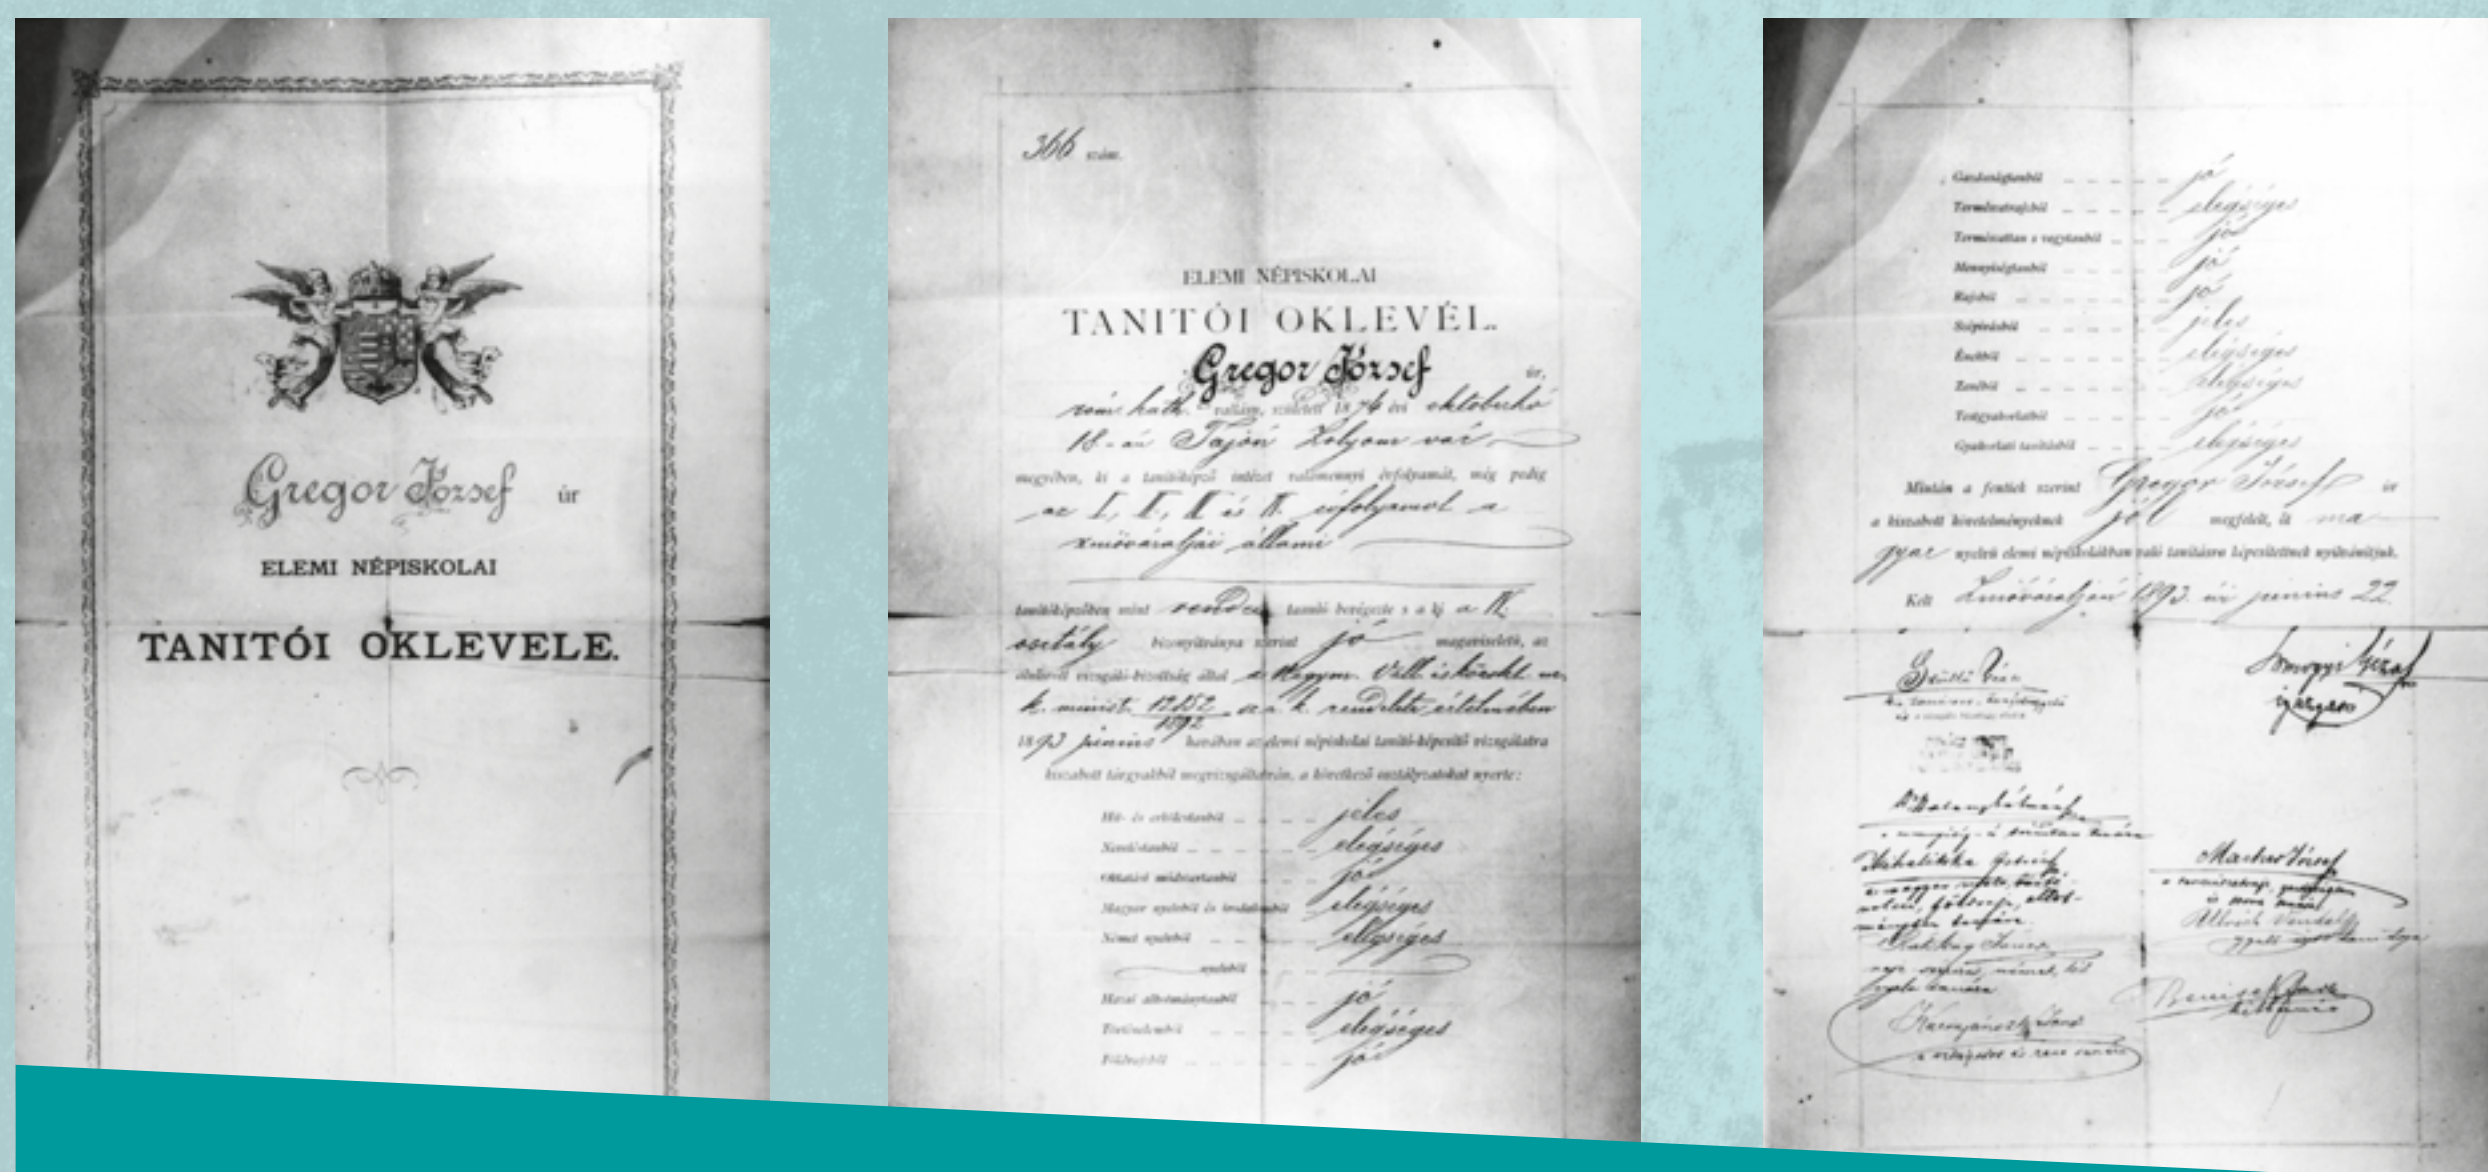 Gregor József úr
ELEMI NÉPISKOLAI
TANITÓI OKLEVELE.
366 szám.
ELEMI NÉPISKOLAI
TANITÓI OKLEVÉL.
Gregor József úr,
róm. kath. vallású, született 1874 évi oktoberhó
18-án Tajón Zolyom vár
megyében, ki a tanítóképző intézet valamennyi évfolyamát, még pedig
az I, II, III és IV. évfolyamot a
znióváraljai állami
tanítóképzőben mint rendes tanuló bevégezte s a kj a IV.
osztály bizonyítványa szerint jó magaviseletű, az
alulirott vizsgáló-bizottság által a Nagym. Vall. és közokt. m.
k. minist. 12152/1892 sz. a. k. rendelete értelmében
1893 junius havában az elemi népiskolai tanító-képesítő vizsgálatra
kiszabott tárgyakból megvizsgáltatván, a következő osztályzatokat nyerte:
Hit- és erkölcstanból jeles
Neveléstanból elégséges
Oktatási módszertanból jó
Magyar nyelvből és irodalomból elégséges
Német nyelvből elégséges
nyelvből
Hazai alkotmánytanból jó
Történelemből elégséges
Földrajzból jó
Gazdaságtanból jó
Természetrajzból elégséges
Természettan s vegytanból jó
Mennyiségtanból jó
Rajzból jó
Szépirásból jeles
Énekből elégséges
Zenéből elégséges
Testgyakorlatból jó
Gyakorlati tanításból elégséges
Miután a fentiek szerint Gregor József úr
a kiszabott követelményeknek jól megfelelt, őt ma-
gyar nyelvű elemi népiskolákban való tanításra képesítettnek nyilvánítjuk.
Kelt Znióváralján 1893. év junius 22.
Somogyi Géza
igazgató
Mihalicska
a magyar nyelv,
Macher József
Ulrich Vendel